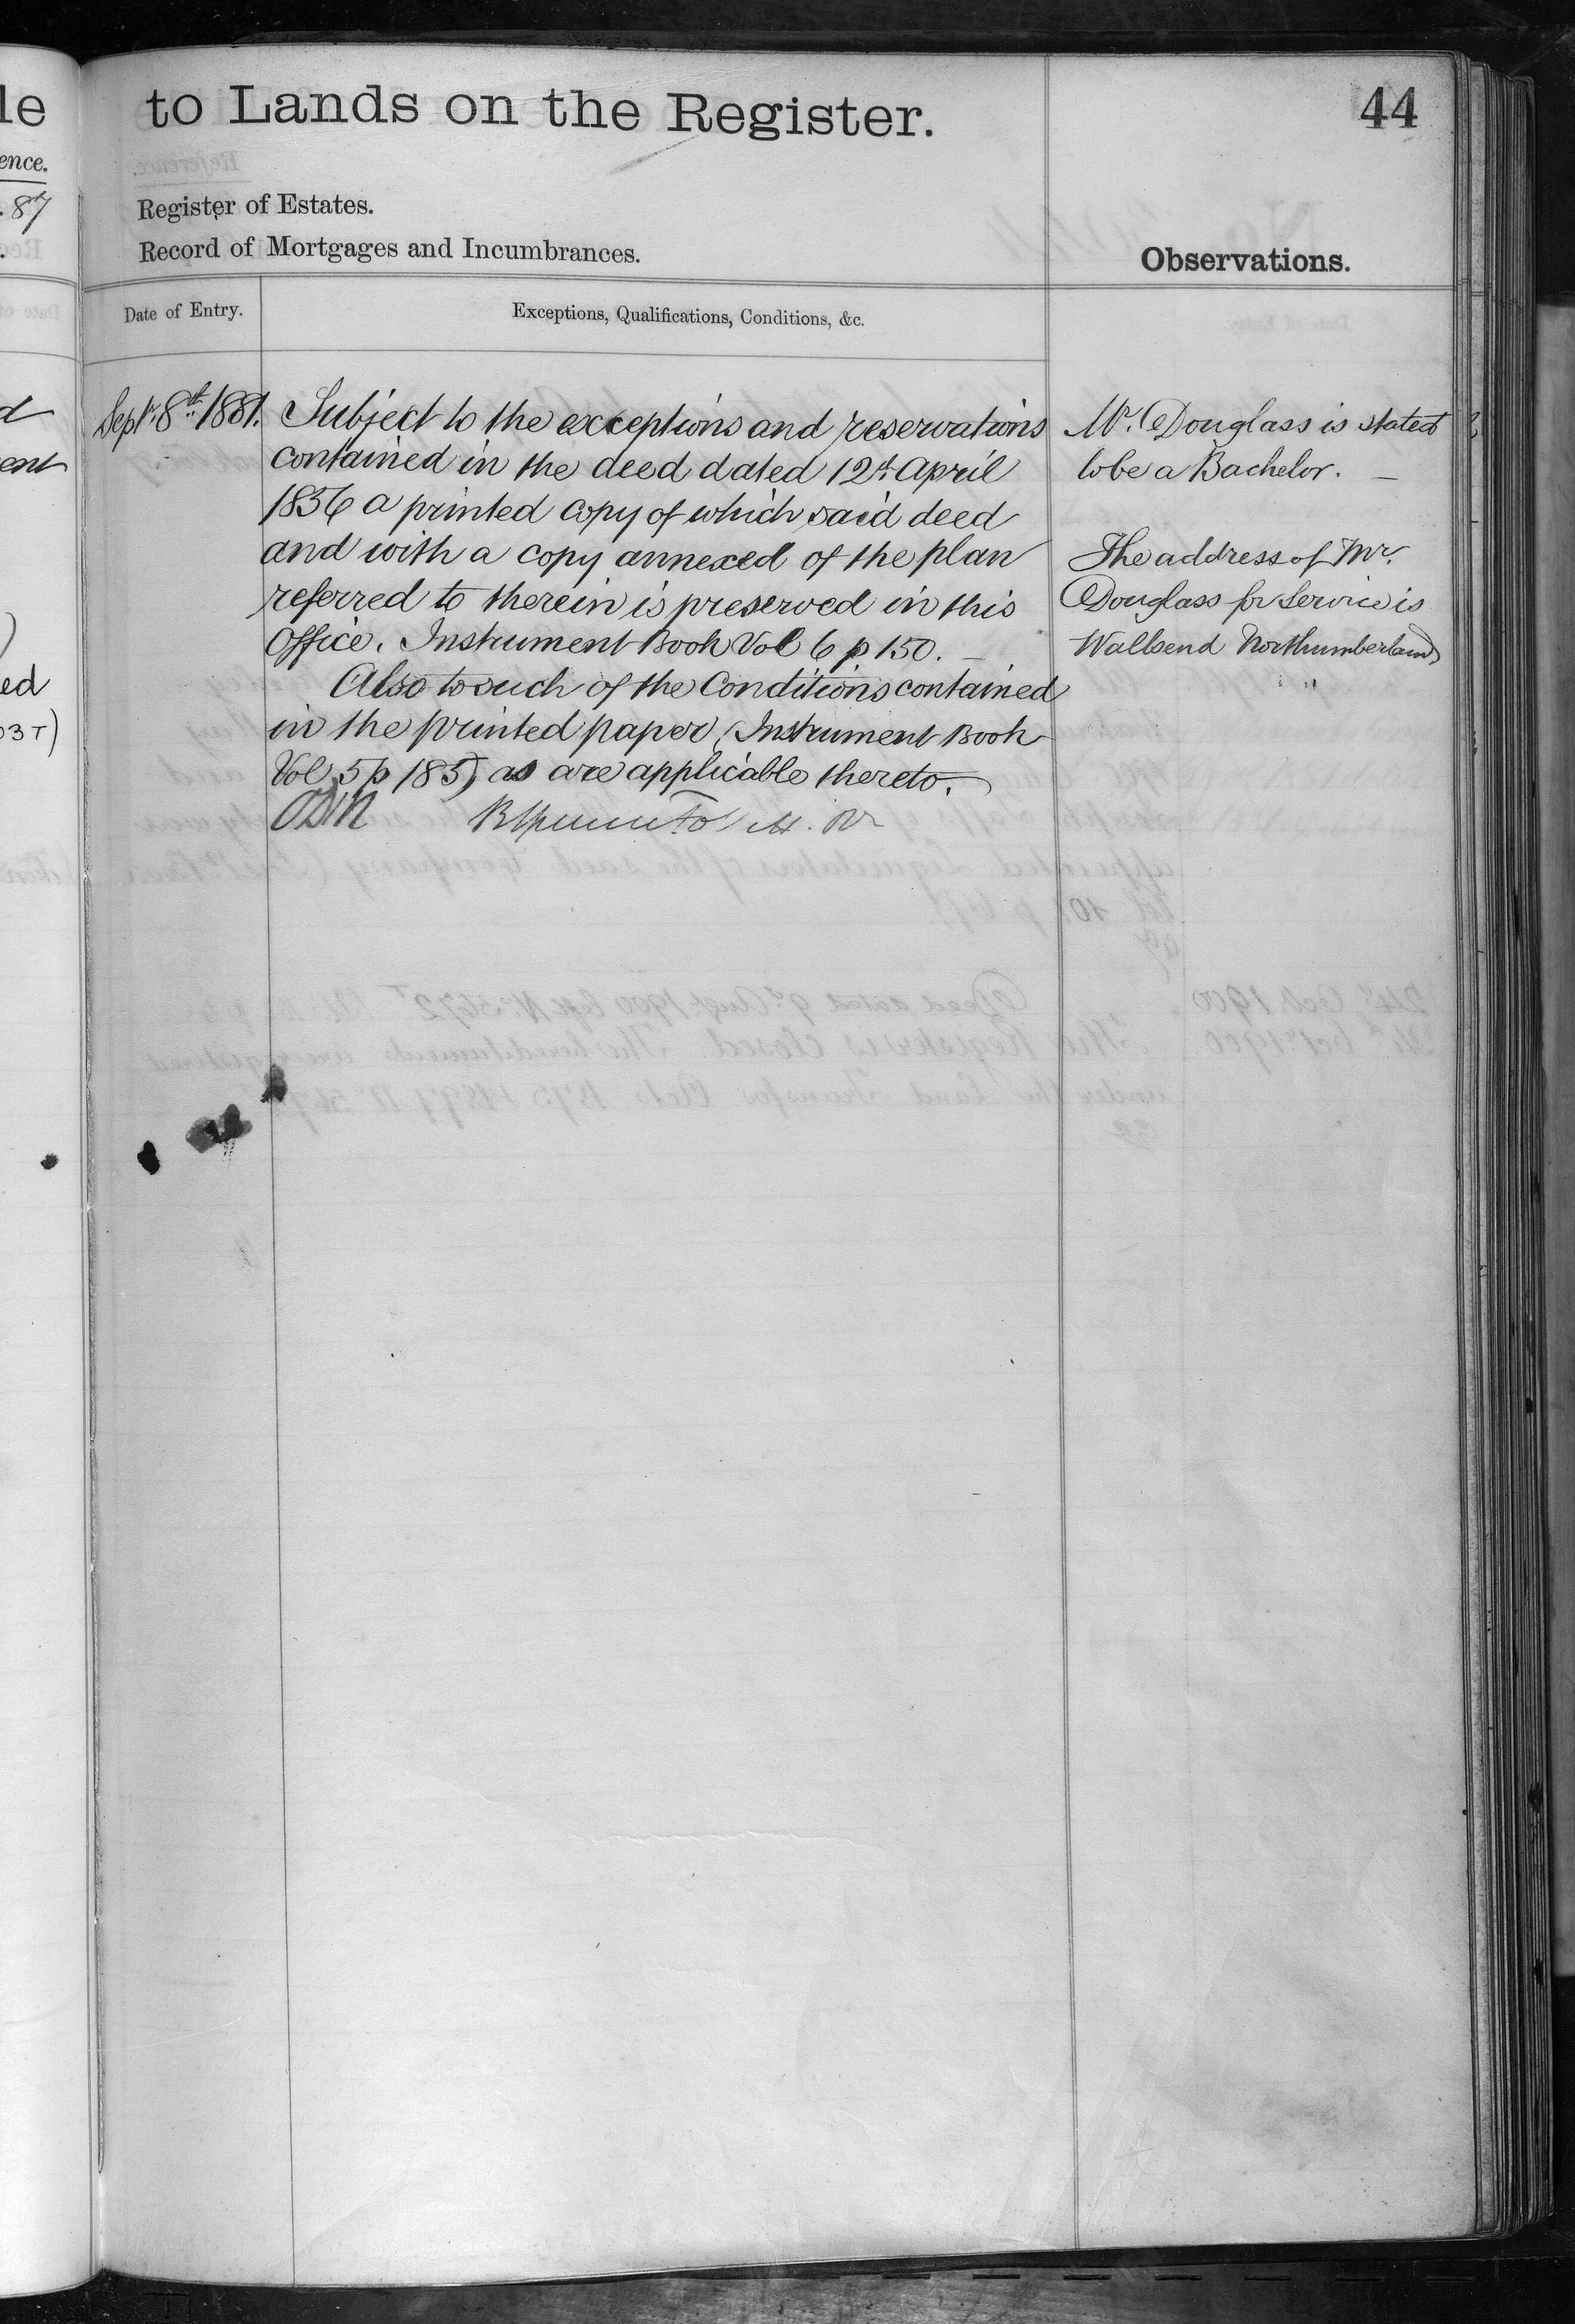 le
ence.
. 87
to Lands on the Register.
44
Register of Estates.
Record of Mortgages and Incumbrances.
Observations.
Date of Entry.
Exceptions, Qualifications, Conditions, &c.
Sept. 8th 1881.
Subject to the exceptions and reservations
contained in the deed dated 12th April
1856 a printed copy of which said deed
and with a copy annexed of the plan
referred to therein is preserved in this
Office. Instrument Book Vol 6 p 150. —
Also to such of the Conditions contained
in the printed paper (Instrument Book
Vol 5 p 185) as are applicable thereto.
Mr. Douglass is stated
to be a Bachelor. —
The address of Mr.
Douglass for Service is
Wallsend Northumberland
d
ent
)
ed
03T)